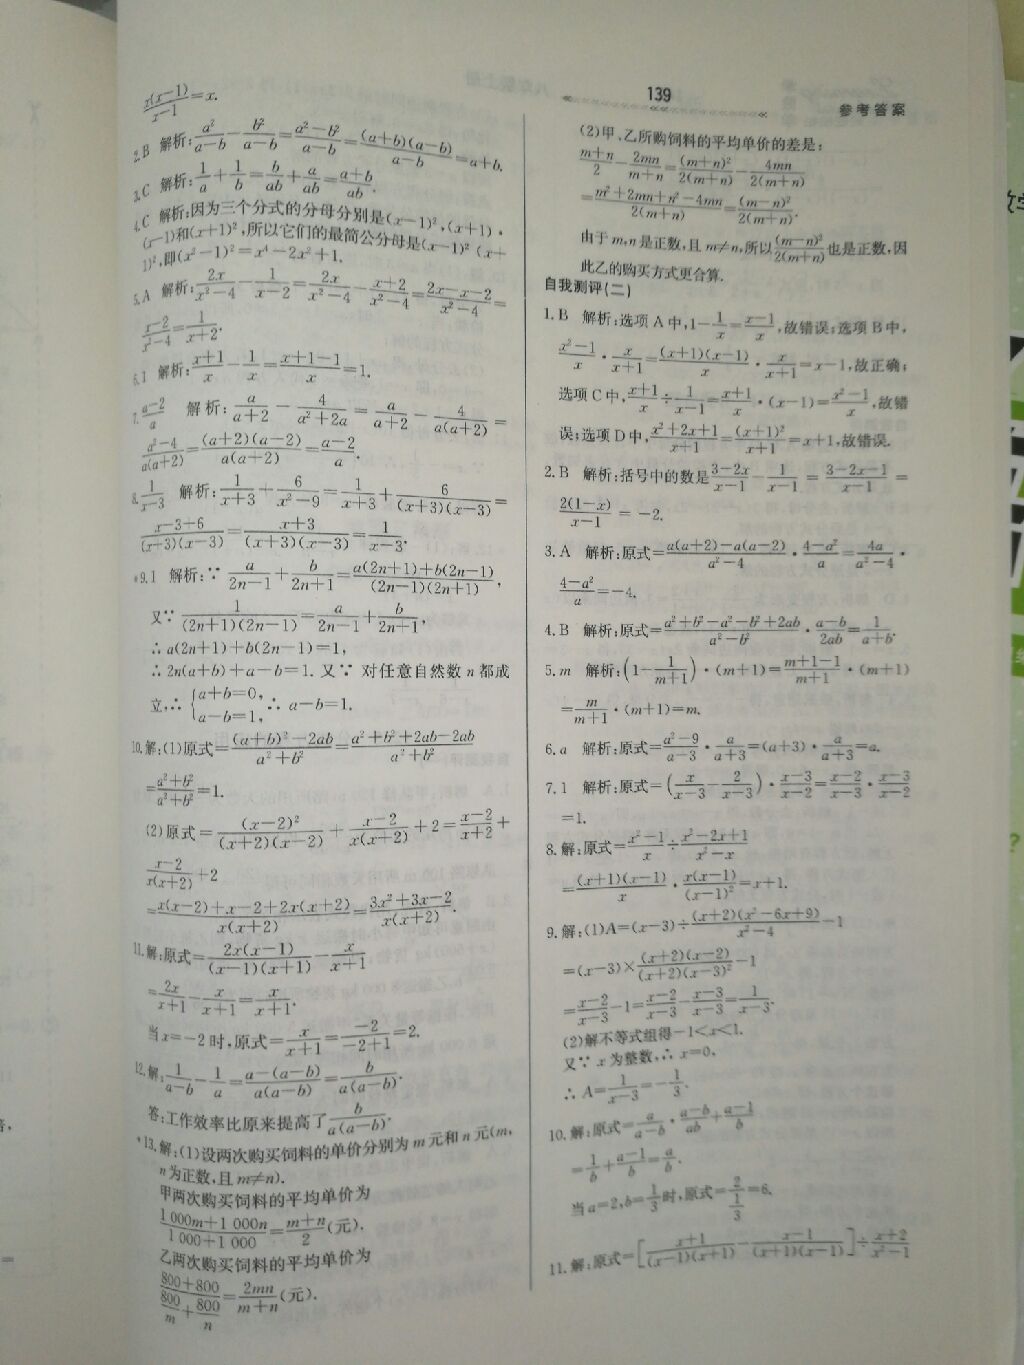 139
参考答案
$\frac{x(x-1)}{x-1}=x.$
2.B 解析:$\frac{a^2}{a-b}-\frac{b^2}{a-b}=\frac{a^2-b^2}{a-b}=\frac{(a+b)(a-b)}{a-b}=a+b.$
3.C 解析:$\frac{1}{a}+\frac{1}{b}=\frac{b}{ab}+\frac{a}{ab}=\frac{a+b}{ab}.$
4.C 解析:因为三个分式的分母分别是$(x-1)^2$,$(x+1)\cdot$
$(x-1)$和$(x+1)^2$,所以它们的最简公分母是$(x-1)^2(x+$
$1)^2$,即$(x^2-1)^2=x^4-2x^2+1.$
5.A 解析:$\frac{2x}{x^2-4}-\frac{1}{x-2}=\frac{2x}{x^2-4}-\frac{x+2}{x^2-4}=\frac{2x-x-2}{x^2-4}=$
$\frac{x-2}{x^2-4}=\frac{1}{x+2}.$
6.1 解析:$\frac{x+1}{x}-\frac{1}{x}=\frac{x+1-1}{x}=1.$
7.$\frac{a-2}{a}$ 解析:$\frac{a}{a+2}-\frac{4}{a^2+2a}=\frac{a}{a+2}-\frac{4}{a(a+2)}=$
$\frac{a^2-4}{a(a+2)}=\frac{(a+2)(a-2)}{a(a+2)}=\frac{a-2}{a}.$
8.$\frac{1}{x-3}$ 解析:$\frac{1}{x+3}+\frac{6}{x^2-9}=\frac{1}{x+3}+\frac{6}{(x+3)(x-3)}=$
$\frac{x-3+6}{(x+3)(x-3)}=\frac{x+3}{(x+3)(x-3)}=\frac{1}{x-3}.$
*9.1 解析:∵$\frac{a}{2n-1}+\frac{b}{2n+1}=\frac{a(2n+1)+b(2n-1)}{(2n-1)(2n+1)}$,
又∵$\frac{1}{(2n+1)(2n-1)}=\frac{a}{2n-1}+\frac{b}{2n+1}$,
∴$a(2n+1)+b(2n-1)=1$,
∴$2n(a+b)+a-b=1.$又∵ 对任意自然数$n$都成
立,∴$\begin{cases}a+b=0,\\a-b=1,\end{cases}$∴ $a-b=1.$
10.解:(1)原式$=\frac{(a+b)^2-2ab}{a^2+b^2}=\frac{a^2+b^2+2ab-2ab}{a^2+b^2}$
$=\frac{a^2+b^2}{a^2+b^2}=1.$
(2)原式$=\frac{(x-2)^2}{(x+2)(x-2)}+\frac{x-2}{x(x+2)}+2=\frac{x-2}{x+2}+$
$\frac{x-2}{x(x+2)}+2$
$=\frac{x(x-2)+x-2+2x(x+2)}{x(x+2)}=\frac{3x^2+3x-2}{x(x+2)}.$
11.解:原式$=\frac{2x(x-1)}{(x-1)(x+1)}-\frac{x}{x+1}$
$=\frac{2x}{x+1}-\frac{x}{x+1}=\frac{x}{x+1}.$
当$x=-2$时,原式$=\frac{x}{x+1}=\frac{-2}{-2+1}=2.$
12.解:$\frac{1}{a-b}-\frac{1}{a}=\frac{a-(a-b)}{a(a-b)}=\frac{b}{a(a-b)}.$
答:工作效率比原来提高了$\frac{b}{a(a-b)}.$
*13.解:(1)设两次购买饲料的单价分别为$m$元和$n$元($m$,
$n$为正数,且$m≠n$).
甲两次购买饲料的平均单价为
$\frac{1\,000m+1\,000n}{1\,000+1\,000}=\frac{m+n}{2}$(元).
乙两次购买饲料的平均单价为
$\frac{800+800}{\frac{800}{m}+\frac{800}{n}}=\frac{2mn}{m+n}$(元).
(2)甲、乙所购饲料的平均单价的差是:
$\frac{m+n}{2}-\frac{2mn}{m+n}=\frac{(m+n)^2}{2(m+n)}-\frac{4mn}{2(m+n)}$
$=\frac{m^2+2mn+n^2-4mn}{2(m+n)}=\frac{(m-n)^2}{2(m+n)}.$
由于$m,n$是正数,且$m≠n$,所以$\frac{(m-n)^2}{2(m+n)}$也是正数,因
此乙的购买方式更合算.
自我测评(二)
1.B 解析:选项A中,$1-\frac{1}{x}=\frac{x-1}{x}$,故错误;选项B中,
$\frac{x^2-1}{x}\cdot\frac{x}{x+1}=\frac{(x+1)(x-1)}{x}\cdot\frac{x}{x+1}=x-1$,故正确;
选项C中,$\frac{x+1}{x}÷\frac{1}{x-1}=\frac{x+1}{x}\cdot(x-1)=\frac{x^2-1}{x}$,故错
误;选项D中,$\frac{x^2+2x+1}{x+1}=\frac{(x+1)^2}{x+1}=x+1$,故错误.
2.B 解析:括号中的数是$\frac{3-2x}{x-1}-\frac{1}{x-1}=\frac{3-2x-1}{x-1}=$
$\frac{2(1-x)}{x-1}=-2.$
3.A 解析:原式$=\frac{a(a+2)-a(a-2)}{a^2-4}\cdot\frac{4-a^2}{a}=\frac{4a}{a^2-4}\cdot$
$\frac{4-a^2}{a}=-4.$
4.B 解析:原式$=\frac{a^2+b^2-a^2-b^2+2ab}{a^2-b^2}\cdot\frac{a-b}{2ab}=\frac{1}{a+b}.$
5.$m$ 解析:$\left(1-\frac{1}{m+1}\right)\cdot(m+1)=\frac{m+1-1}{m+1}\cdot(m+1)$
$=\frac{m}{m+1}\cdot(m+1)=m.$
6.$a$ 解析:原式$=\frac{a^2-9}{a-3}\cdot\frac{a}{a+3}=(a+3)\cdot\frac{a}{a+3}=a.$
7.1 解析:原式$=\left(\frac{x}{x-3}-\frac{2}{x-3}\right)\cdot\frac{x-3}{x-2}=\frac{x-2}{x-3}\cdot\frac{x-3}{x-2}$
$=1.$
8.解:原式$=\frac{x^2-1}{x}÷\frac{x^2-2x+1}{x^2-x}$
$=\frac{(x+1)(x-1)}{x}\cdot\frac{x(x-1)}{(x-1)^2}=x+1.$
9.解:(1)$A=(x-3)÷\frac{(x+2)(x^2-6x+9)}{x^2-4}-1$
$=(x-3)×\frac{(x+2)(x-2)}{(x+2)(x-3)^2}-1$
$=\frac{x-2}{x-3}-1=\frac{x-2}{x-3}-\frac{x-3}{x-3}=\frac{1}{x-3}.$
(2)解不等式组得$-1<x<1.$
又∵ $x$为整数,∴ $x=0$,
∴ $A=\frac{1}{x-3}=-\frac{1}{3}.$
10.解:原式$=\frac{a}{a-b}\cdot\frac{a-b}{ab}+\frac{a-1}{b}$
$=\frac{1}{b}+\frac{a-1}{b}=\frac{a}{b}.$
当$a=2,b=\frac{1}{3}$时,原式$=\frac{2}{\frac{1}{3}}=6.$
11.解:原式$=\left[\frac{x+1}{(x-1)(x+1)}-\frac{x-1}{(x+1)(x-1)}\right]÷\frac{x+2}{x^2-1}$